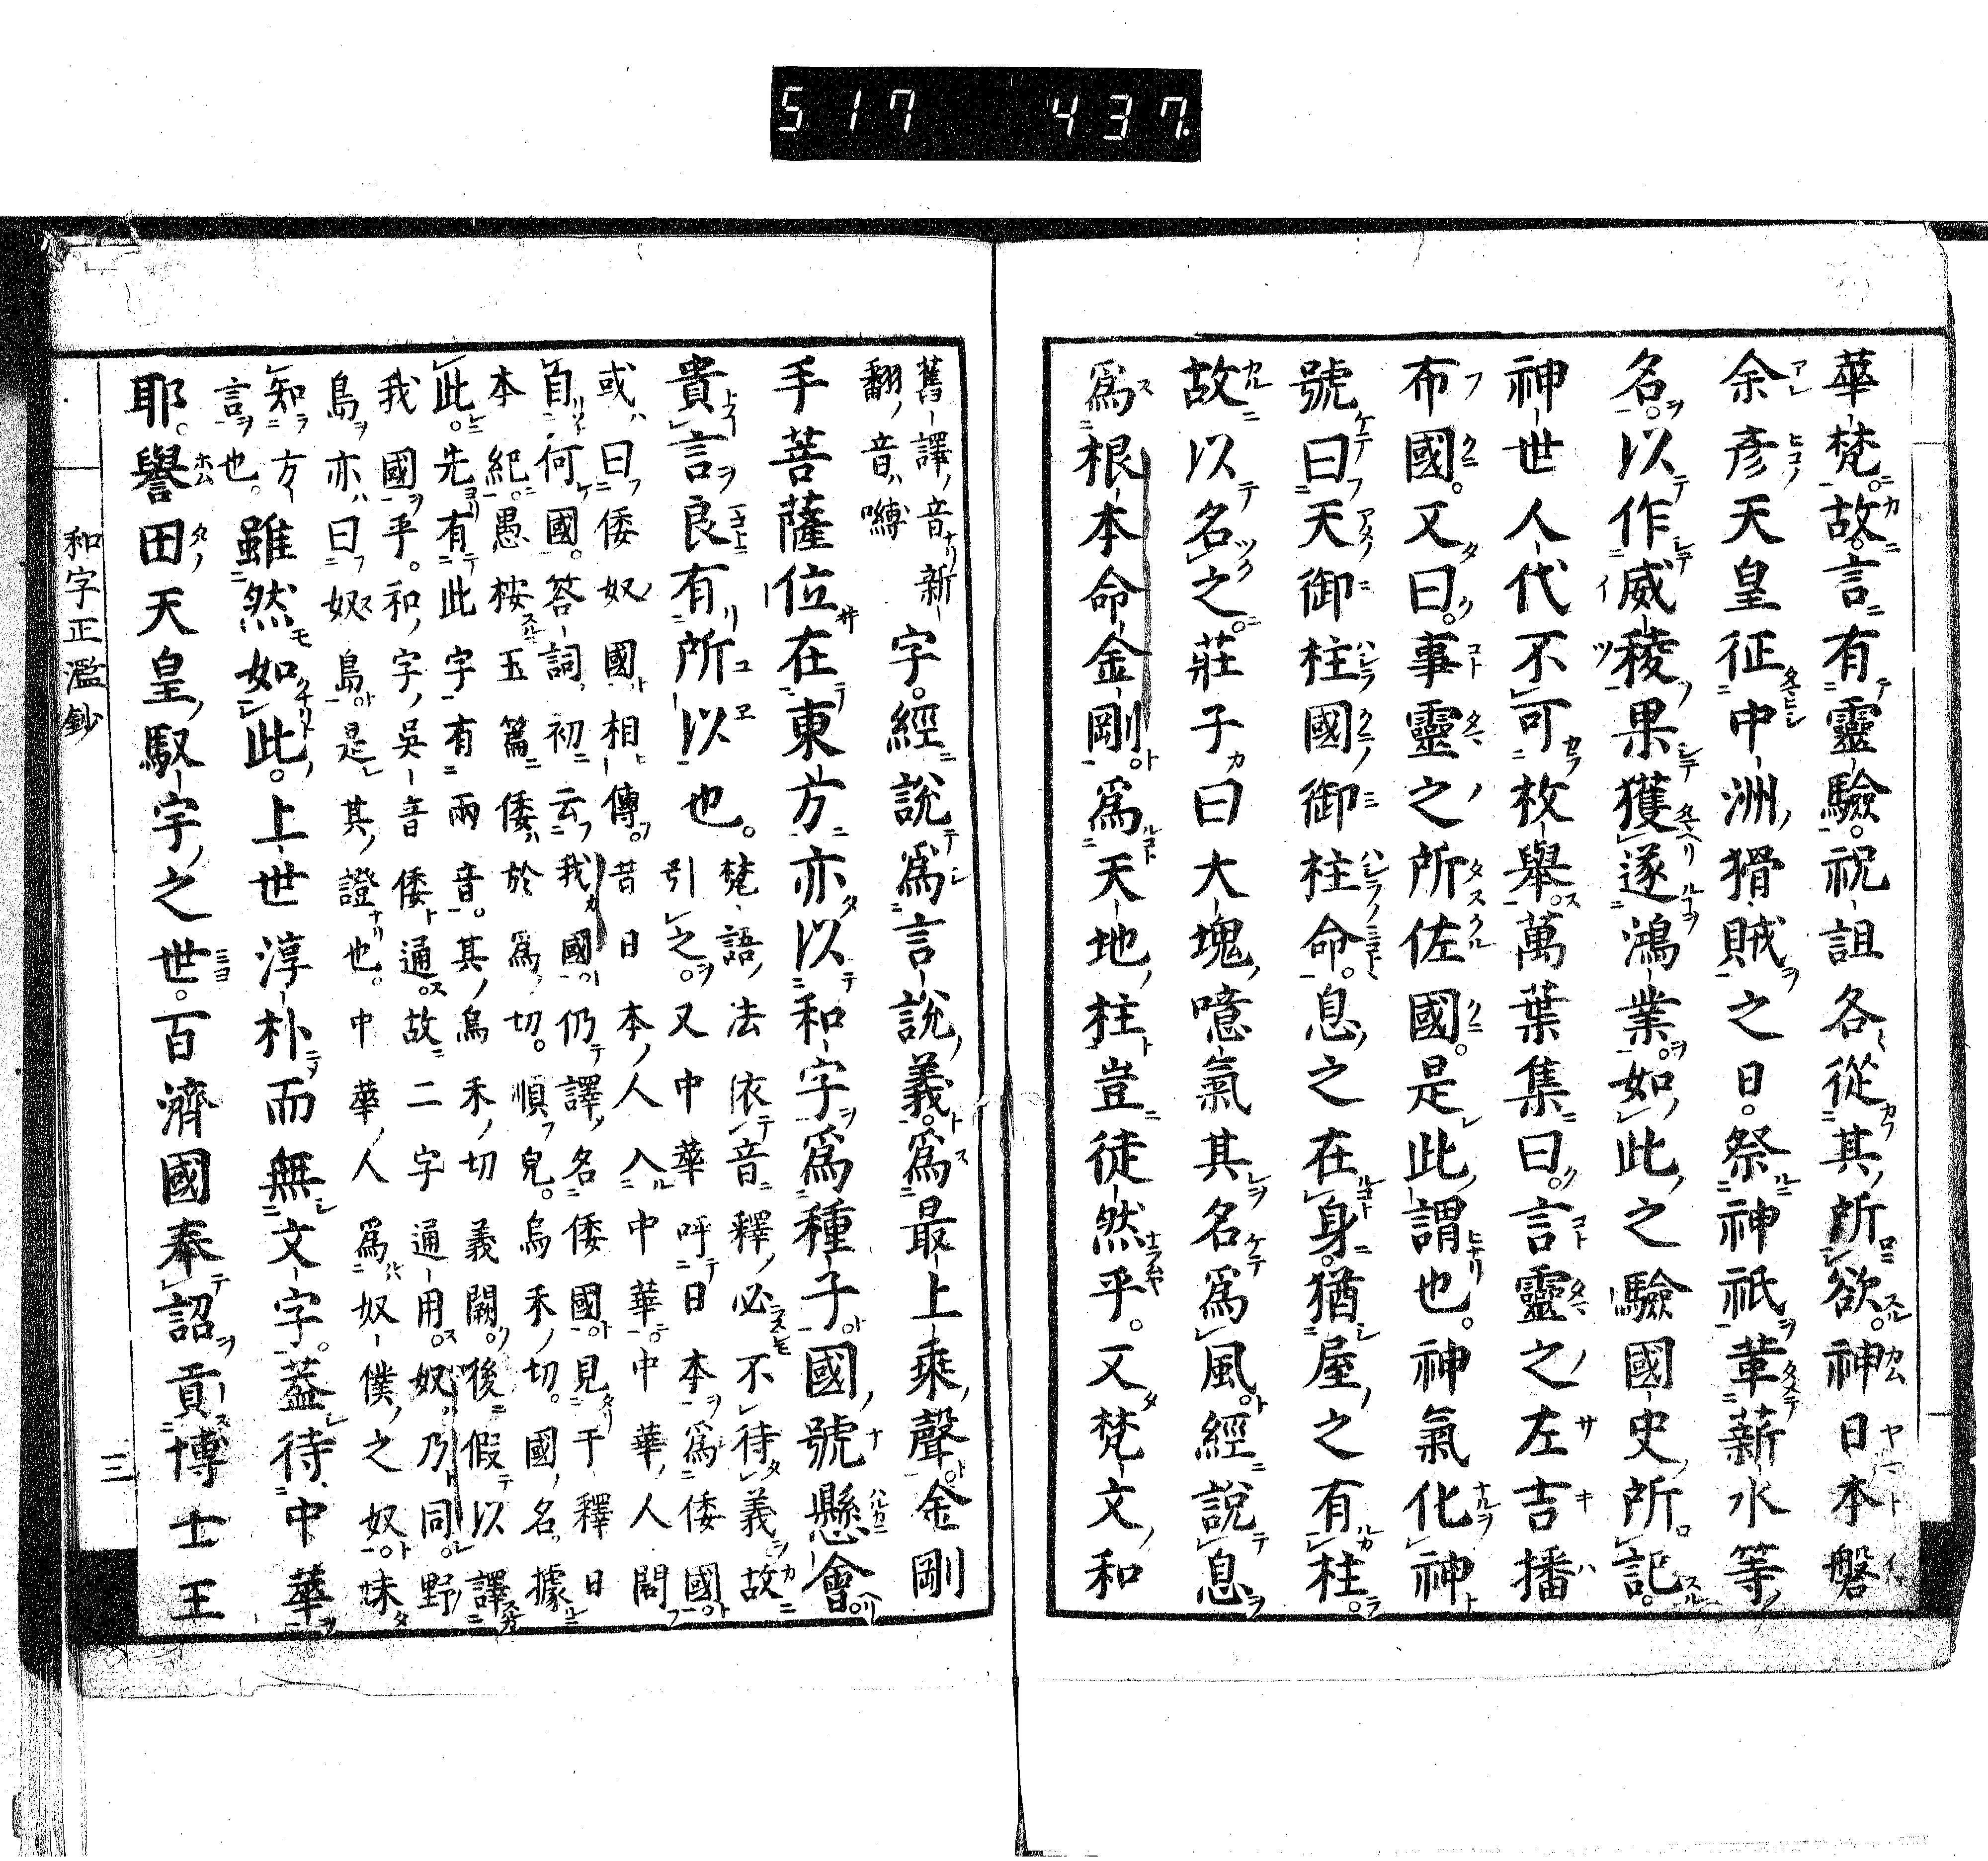 517 437
華梵故言有靈驗祝詛各從其所欲神日本磐
余彥天皇征中洲猾賊之日祭神祇葷薪水等
名以作威稜果獲遂鴻業如此之驗國史所記
神世人代不可枚舉萬葉集曰言靈之左吉播
布國又曰事靈之所佐國是此謂也神氣化神
號曰天御柱國御柱命息之在身猶屋之有柱
故以名之莊子曰大塊噫氣其名爲風經說息
爲根本命金剛爲天地柱豈徒然乎又梵文和
舊譯音新
翻音嚩
字經說爲言說義爲最上乘聲金剛
手菩薩位在東方亦以和字爲種子國號懸會
貴言良有所以也
梵語法依音釋必不待義故
引之又中華呼日本爲倭國
或曰倭奴國相傳昔日本人入中華中華人問
自何國答詞初云我國仍譯名倭國見于釋日
本紀愚桉玉篇倭於爲切順皃烏禾切國名據
此先有此字有兩音其烏禾切義闕後假以譯
我國乎和字吳音倭通故二字通用奴乃同野
島亦曰奴島是其證也中華人爲奴僕之奴妹
知方
言也
雖然如此上世淳朴而無文字蓋待中華
耶譽田天皇馭宇之世百濟國奉詔貢博士王
和字正濫鈔
三